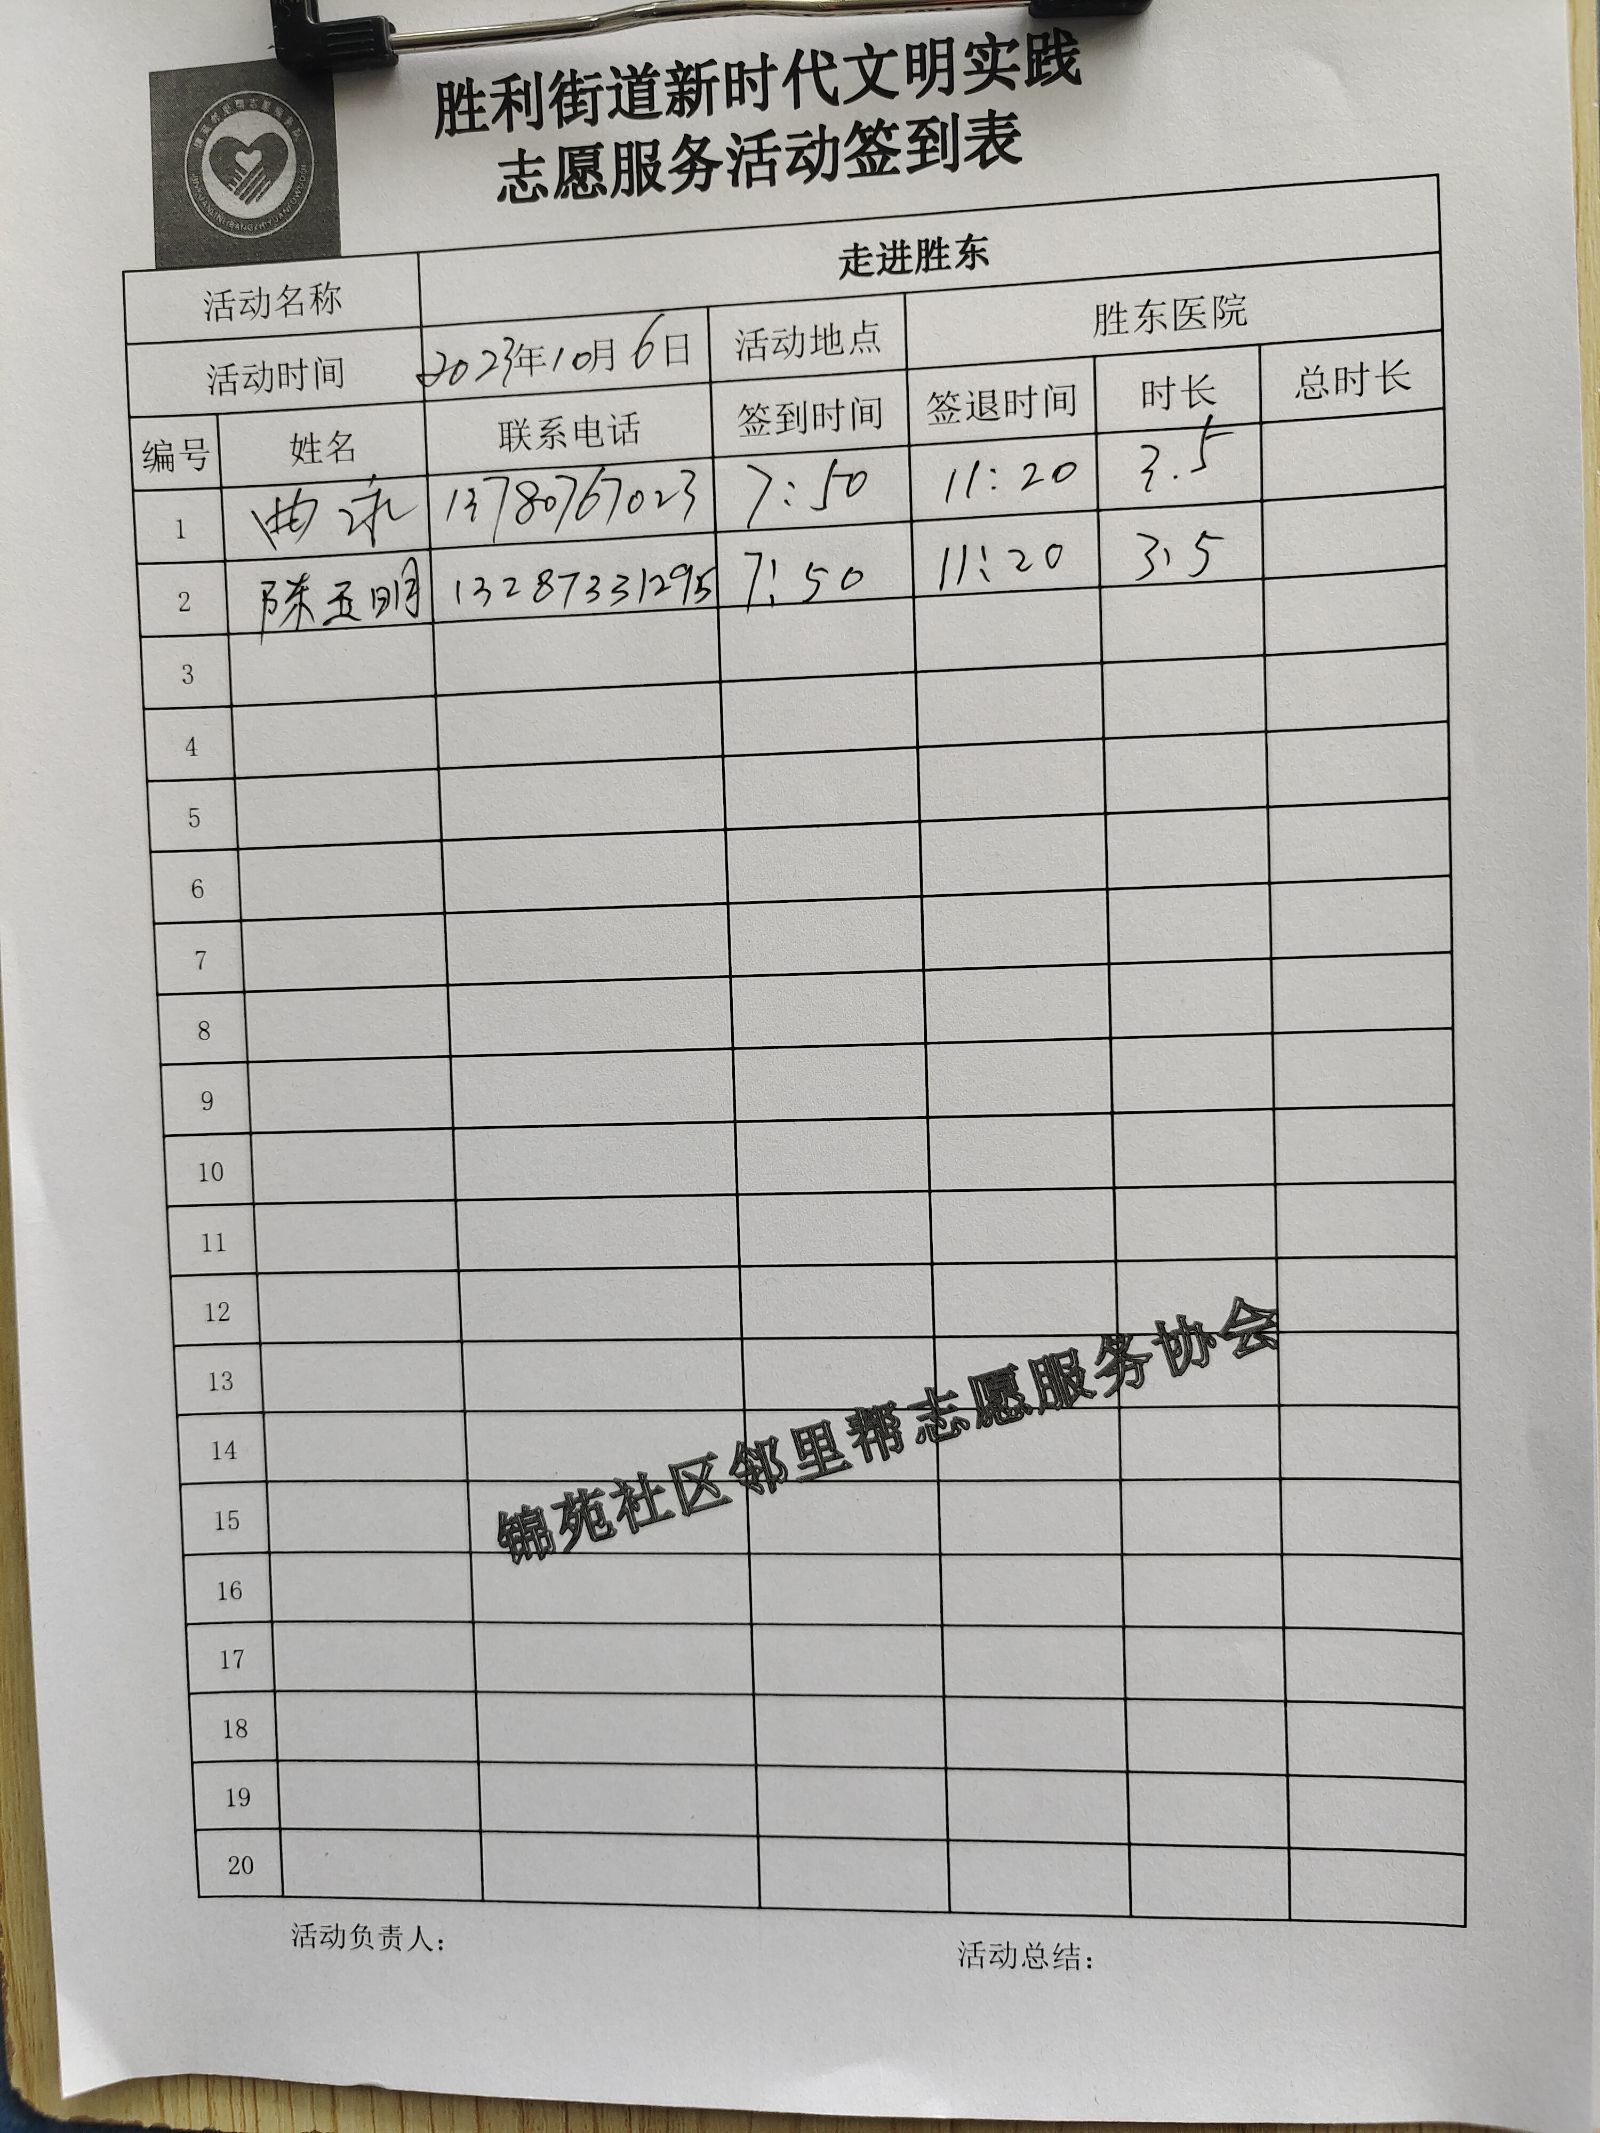 胜利街道新时代文明实践
志愿服务活动签到表
活动名称 走进胜东
活动时间 2023年10月6日 活动地点 胜东医院
编号 姓名 联系电话 签到时间 签退时间 时长 总时长
1 曲永 13780767023 7:50 11:20 3.5
2 陈玉明 13287331295 7:50 11:20 3.5
3
4
5
6
7
8
9
10
11
12
13
14
15
16
17
18
19
20
锦苑社区邻里帮志愿服务协会
活动负责人: 活动总结: